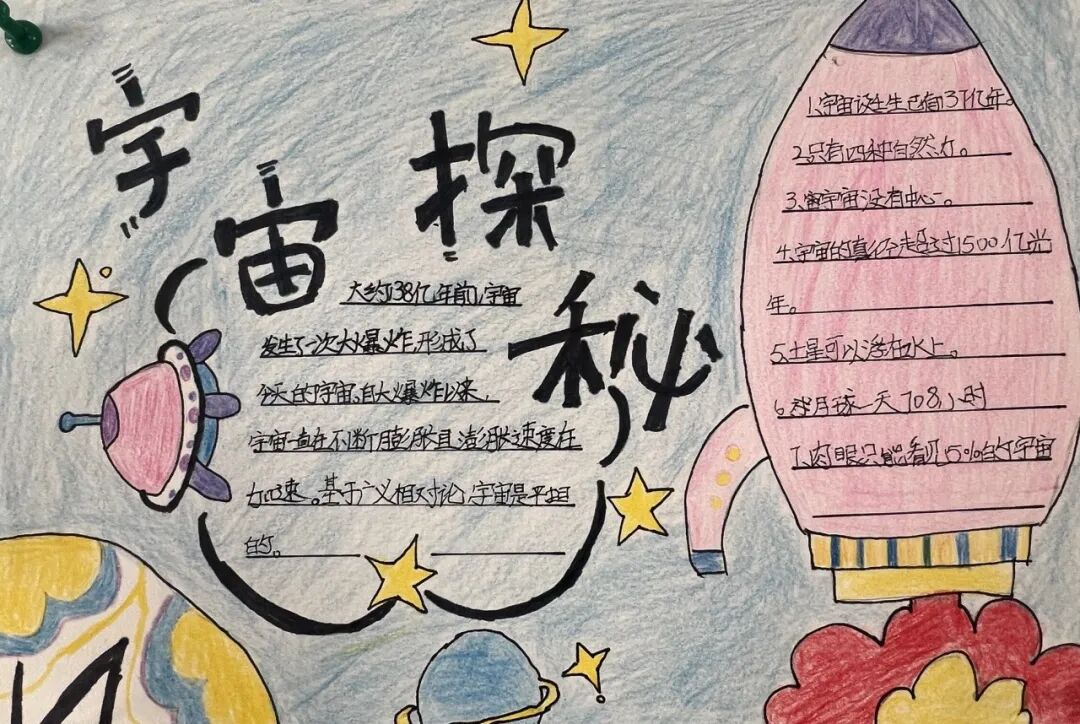 宇宙探秘
大约138亿年前,宇宙
发生了一次大爆炸,形成了
今天的宇宙,自大爆炸以来,
宇宙一直在不断膨胀且澎胀速度在
加速。基于广义相对论,宇宙是平坦
的。
1、宇宙诞生已有137亿年。
2、只有四种自然力。
3、宇宙没有中心。
4、宇宙的直径超过1500亿光
年。
5、土星可以浮在水上。
6、月球一天708小时
7、肉眼只能看见5%的宇宙